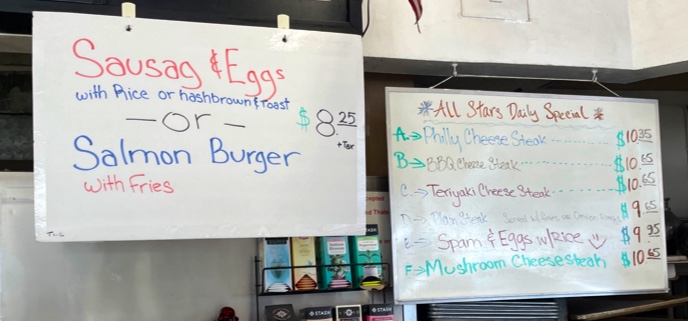 Sausag & Eggs
with Rice or hashbrown & Toast
— or —
$8.25
+ Tax
Salmon Burger
with Fries
*All Stars Daily Special*
A.→ Philly Cheese Steak $10.35
B→ BBQ Cheese Steak $10.65
C.→ Teriyaki Cheese Steak $10.65
D→ Plain Steak Served w/ Fries or Onion Rings $9.65
E→ Spam & Eggs w/ Rice $9.95
F→ Mushroom Cheese steak $10.65
STASH
STASH